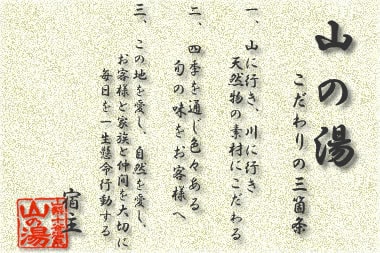 山の湯
こだわりの三箇条
一、山に行き、川に行き
天然物の素材にこだわる
二、四季を通じ色々ある
旬の味をお客様へ
三、この地を愛し、自然を愛し、
お客様と家族と仲間を大切に
毎日を一生懸命行動する
宿主
山の湯